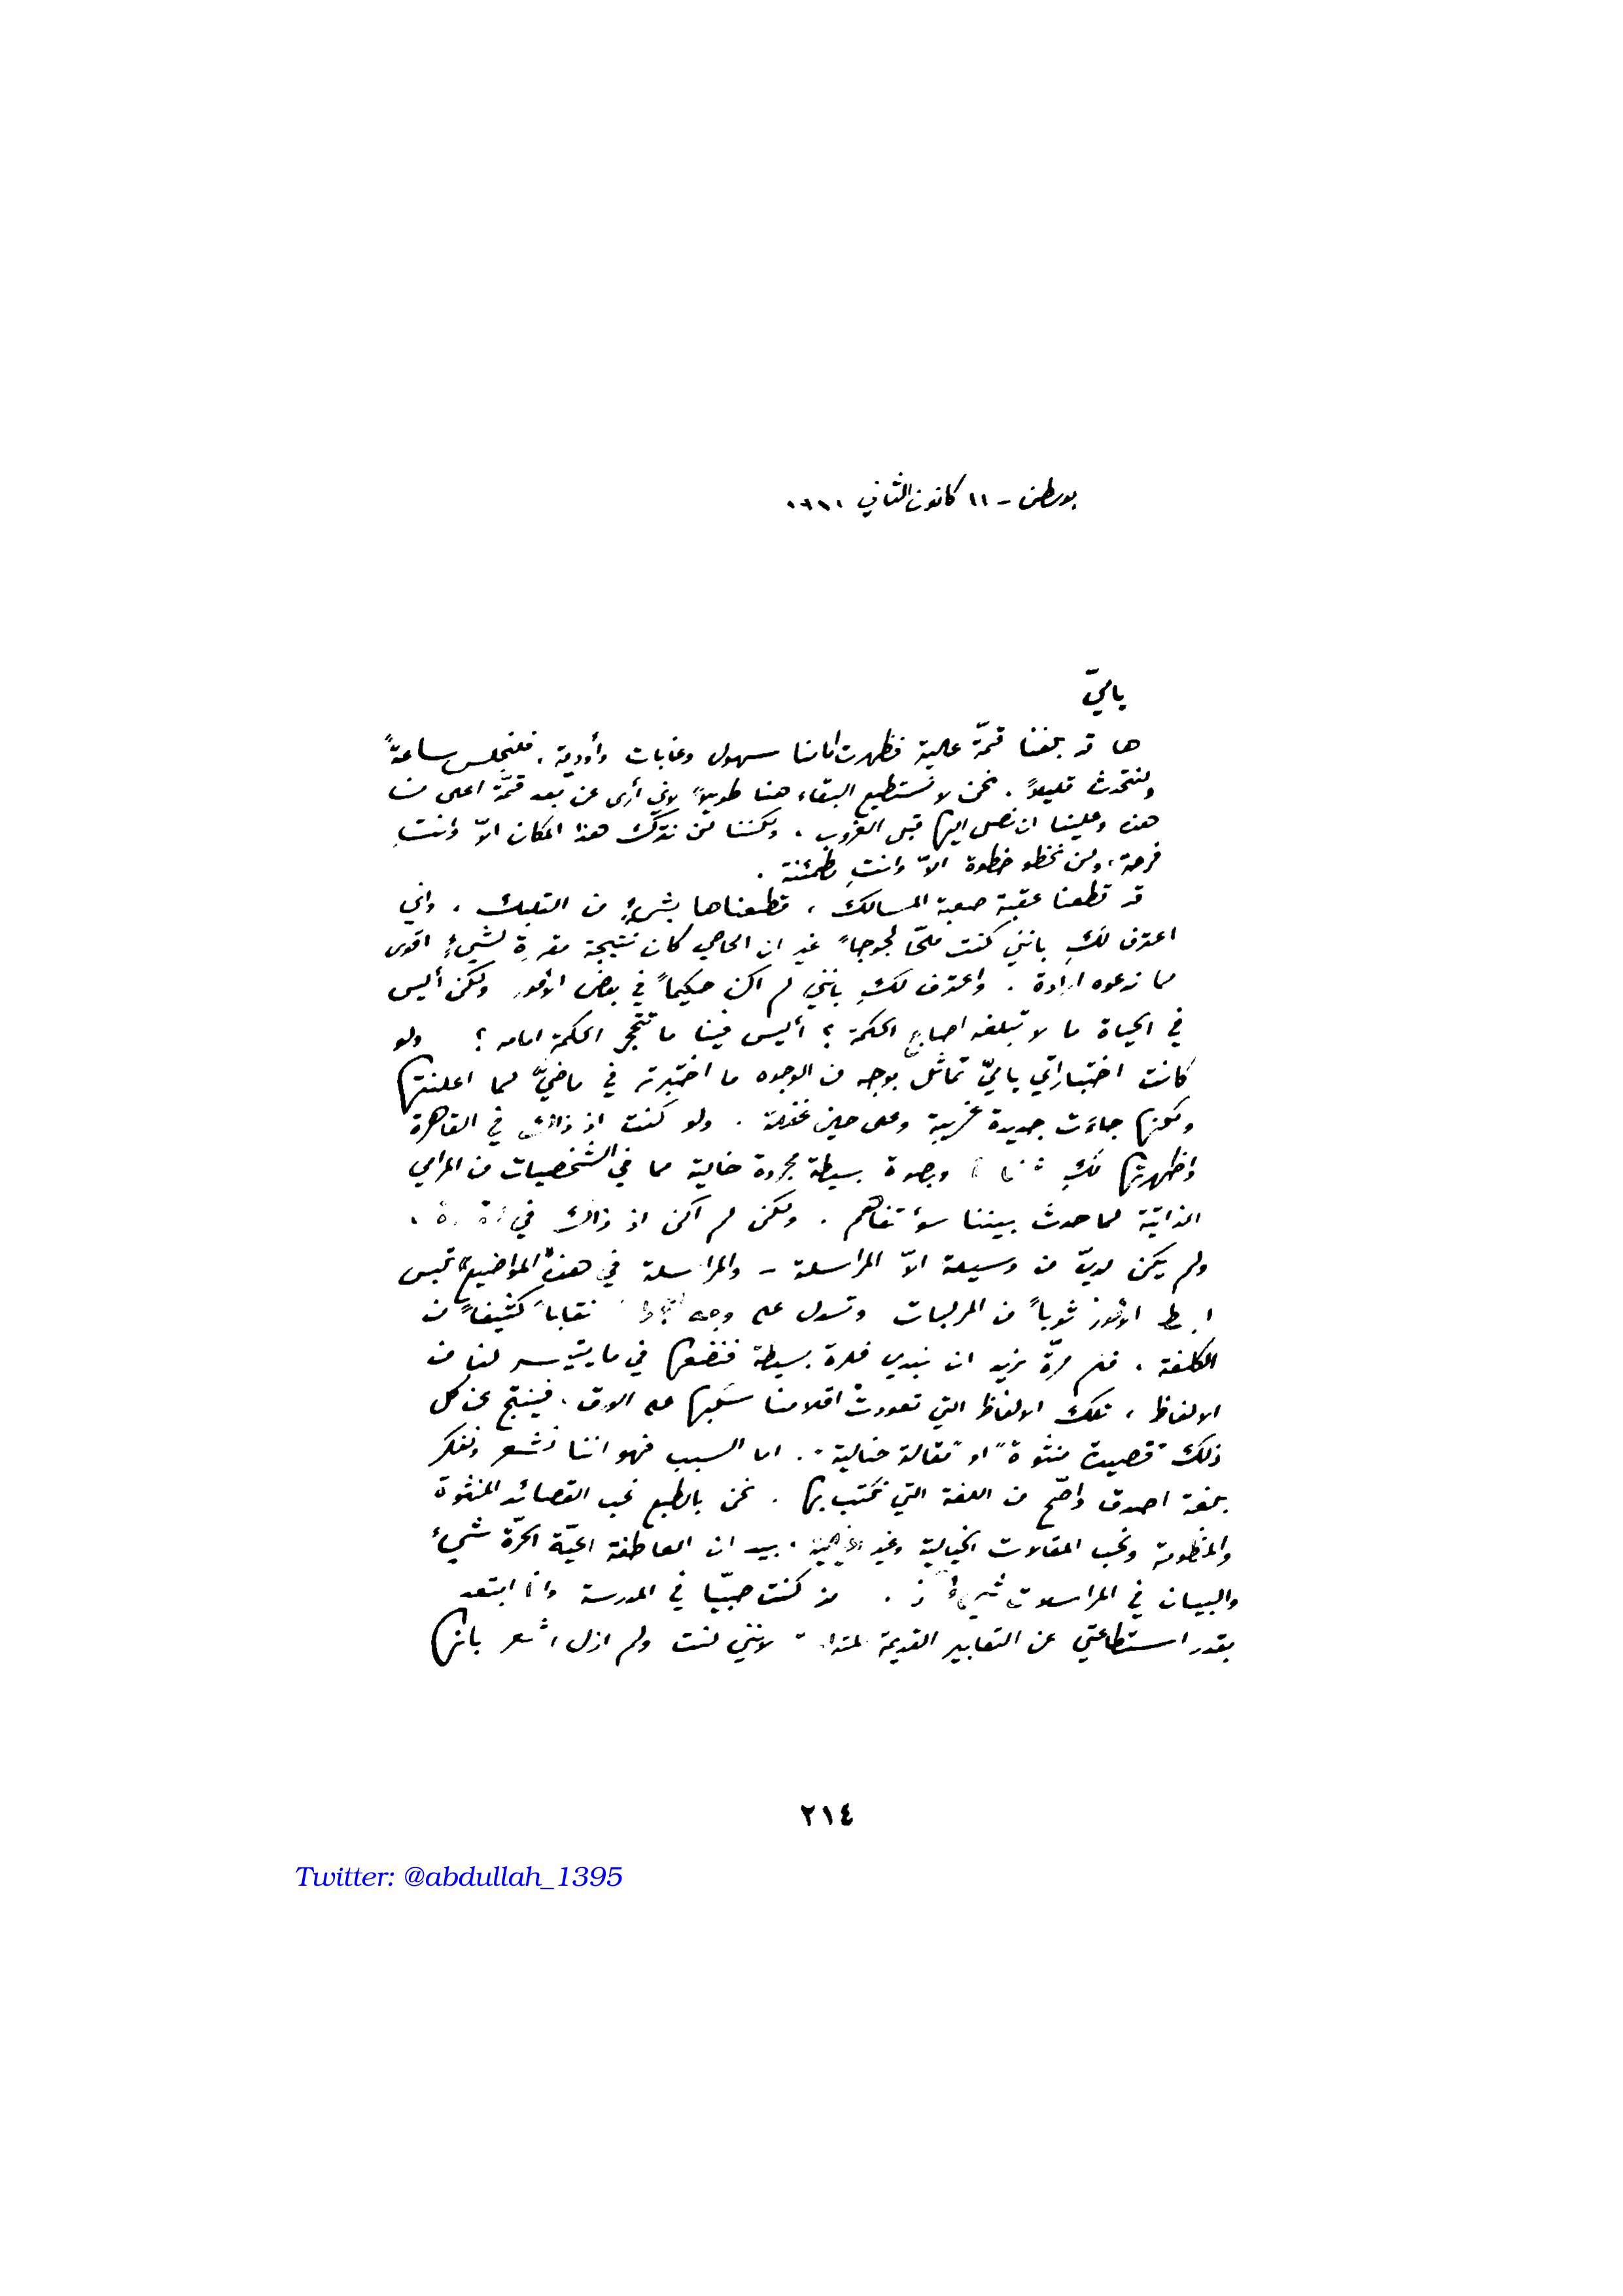 بوسطن - ١١ كانون الثاني
يا ميّ
ها قد بلغنا قمّة عالية فظهرت امامنا سهول وغابات وأودية ، فلنجلس ساعةً
ولنتحدث قليلاً . نحن لا نستطيع البقاء هنا طويلاً لاني أرى عن بعد قمّة اعلى من
هذه وعلينا ان نصل اليها قبل الغروب . ولكننا لن نترك هذا المكان الاّ وانتِ
فرحة ، ولن نخطو خطوة الاّ وانتِ مطمئنة .
قد قطعنا عقبة صعبة المسالك ، قطعناها بشيءٍ من التلبك ، واني
اعترف لكِ بانني كنت ملحّا لجوجاً غير ان الحاحي كان نتيجة مقررة لشيءٍ اقوى
مما ندعوه ارادة . واعترف لكِ بانني لم اكن حكيماً في بعض الأمور ولكن أليس
في الحياة ما لا تبلغه اصابع الحكمة ؟ أليس فينا ما تتحجر الحكمة امامه ؟ ولو
كانت اختباراتي يا ميّ تماثل بوجه من الوجوه ما اختبرته في ماضيَّ لما اعلنتها
ولكنها جاءَت جديدة غريبة وعلى حين غفلة . ولو كنت اذ ذاك في القاهرة
واظهرتها لكِ وبصورة بسيطة مجردة خالية مما في الشخصيات من المرامي
الذاتيّة لما حدث بيننا سؤ تفاهم . ولكن لم اكن اذ ذاك في
ولم يكن لديّ من وسيلة الاّ المراسلة - والمراسلة في هذه "المواضيع" تلبس
ابسط الأمور ثوباً من المركبات وتسدل على وجه نقاباً كثيفاً من
الكلفة . فكم مرّة نريد ان نبدي فكرة بسيطة فنضعها في ما يتيسر لنا من
الالفاظ ، تلك الالفاظ التي تعودت اقلامنا سكبها على الورق ، فينتج عن كل
ذلك "قصيدة منثورة" او "مقالة خيالية" . اما السبب فهو اننا نشعر ونفكر
بلغة اصدق واصّح من اللغة التي نكتب بها . نحن بالطبع نحب القصائد المنثورة
والمنظومة ونحب المقالات الخيالية وغير الخيالية . بيد ان العاطفة الحيّة الحرّة شيءٌ
والبيان في المراسلات شيءٌ . مذ كنت صبيّا في المدرسة وانا ابتعد
بقدر استطاعتي عن التعابير القديمة لانني كنت ولم ازل اشعر بانها
٢١٤
Twitter: @abdullah_1395